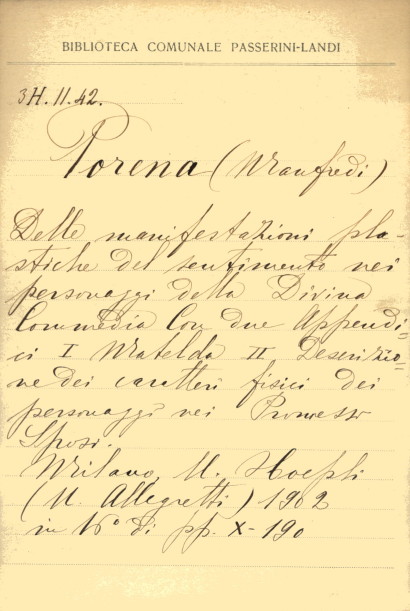 BIBLIOTECA COMUNALE PASSERINI-LANDI
3H.II.42.
Porena (Manfredi)
Delle manifestazioni pla-
stiche del sentimento nei
personaggi della Divina
Commedia Con due Appendi=
ci I Matelda II Descrizio=
ne dei caratteri fisici dei
personaggi nei Promessi
Sposi.
Milano, U. Hoepli
(U. Allegretti) 1902
in 16° di pp. X-190